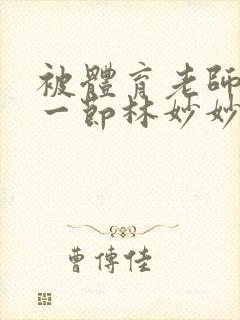 被體育老師
一節林妙妙
曹傳佳